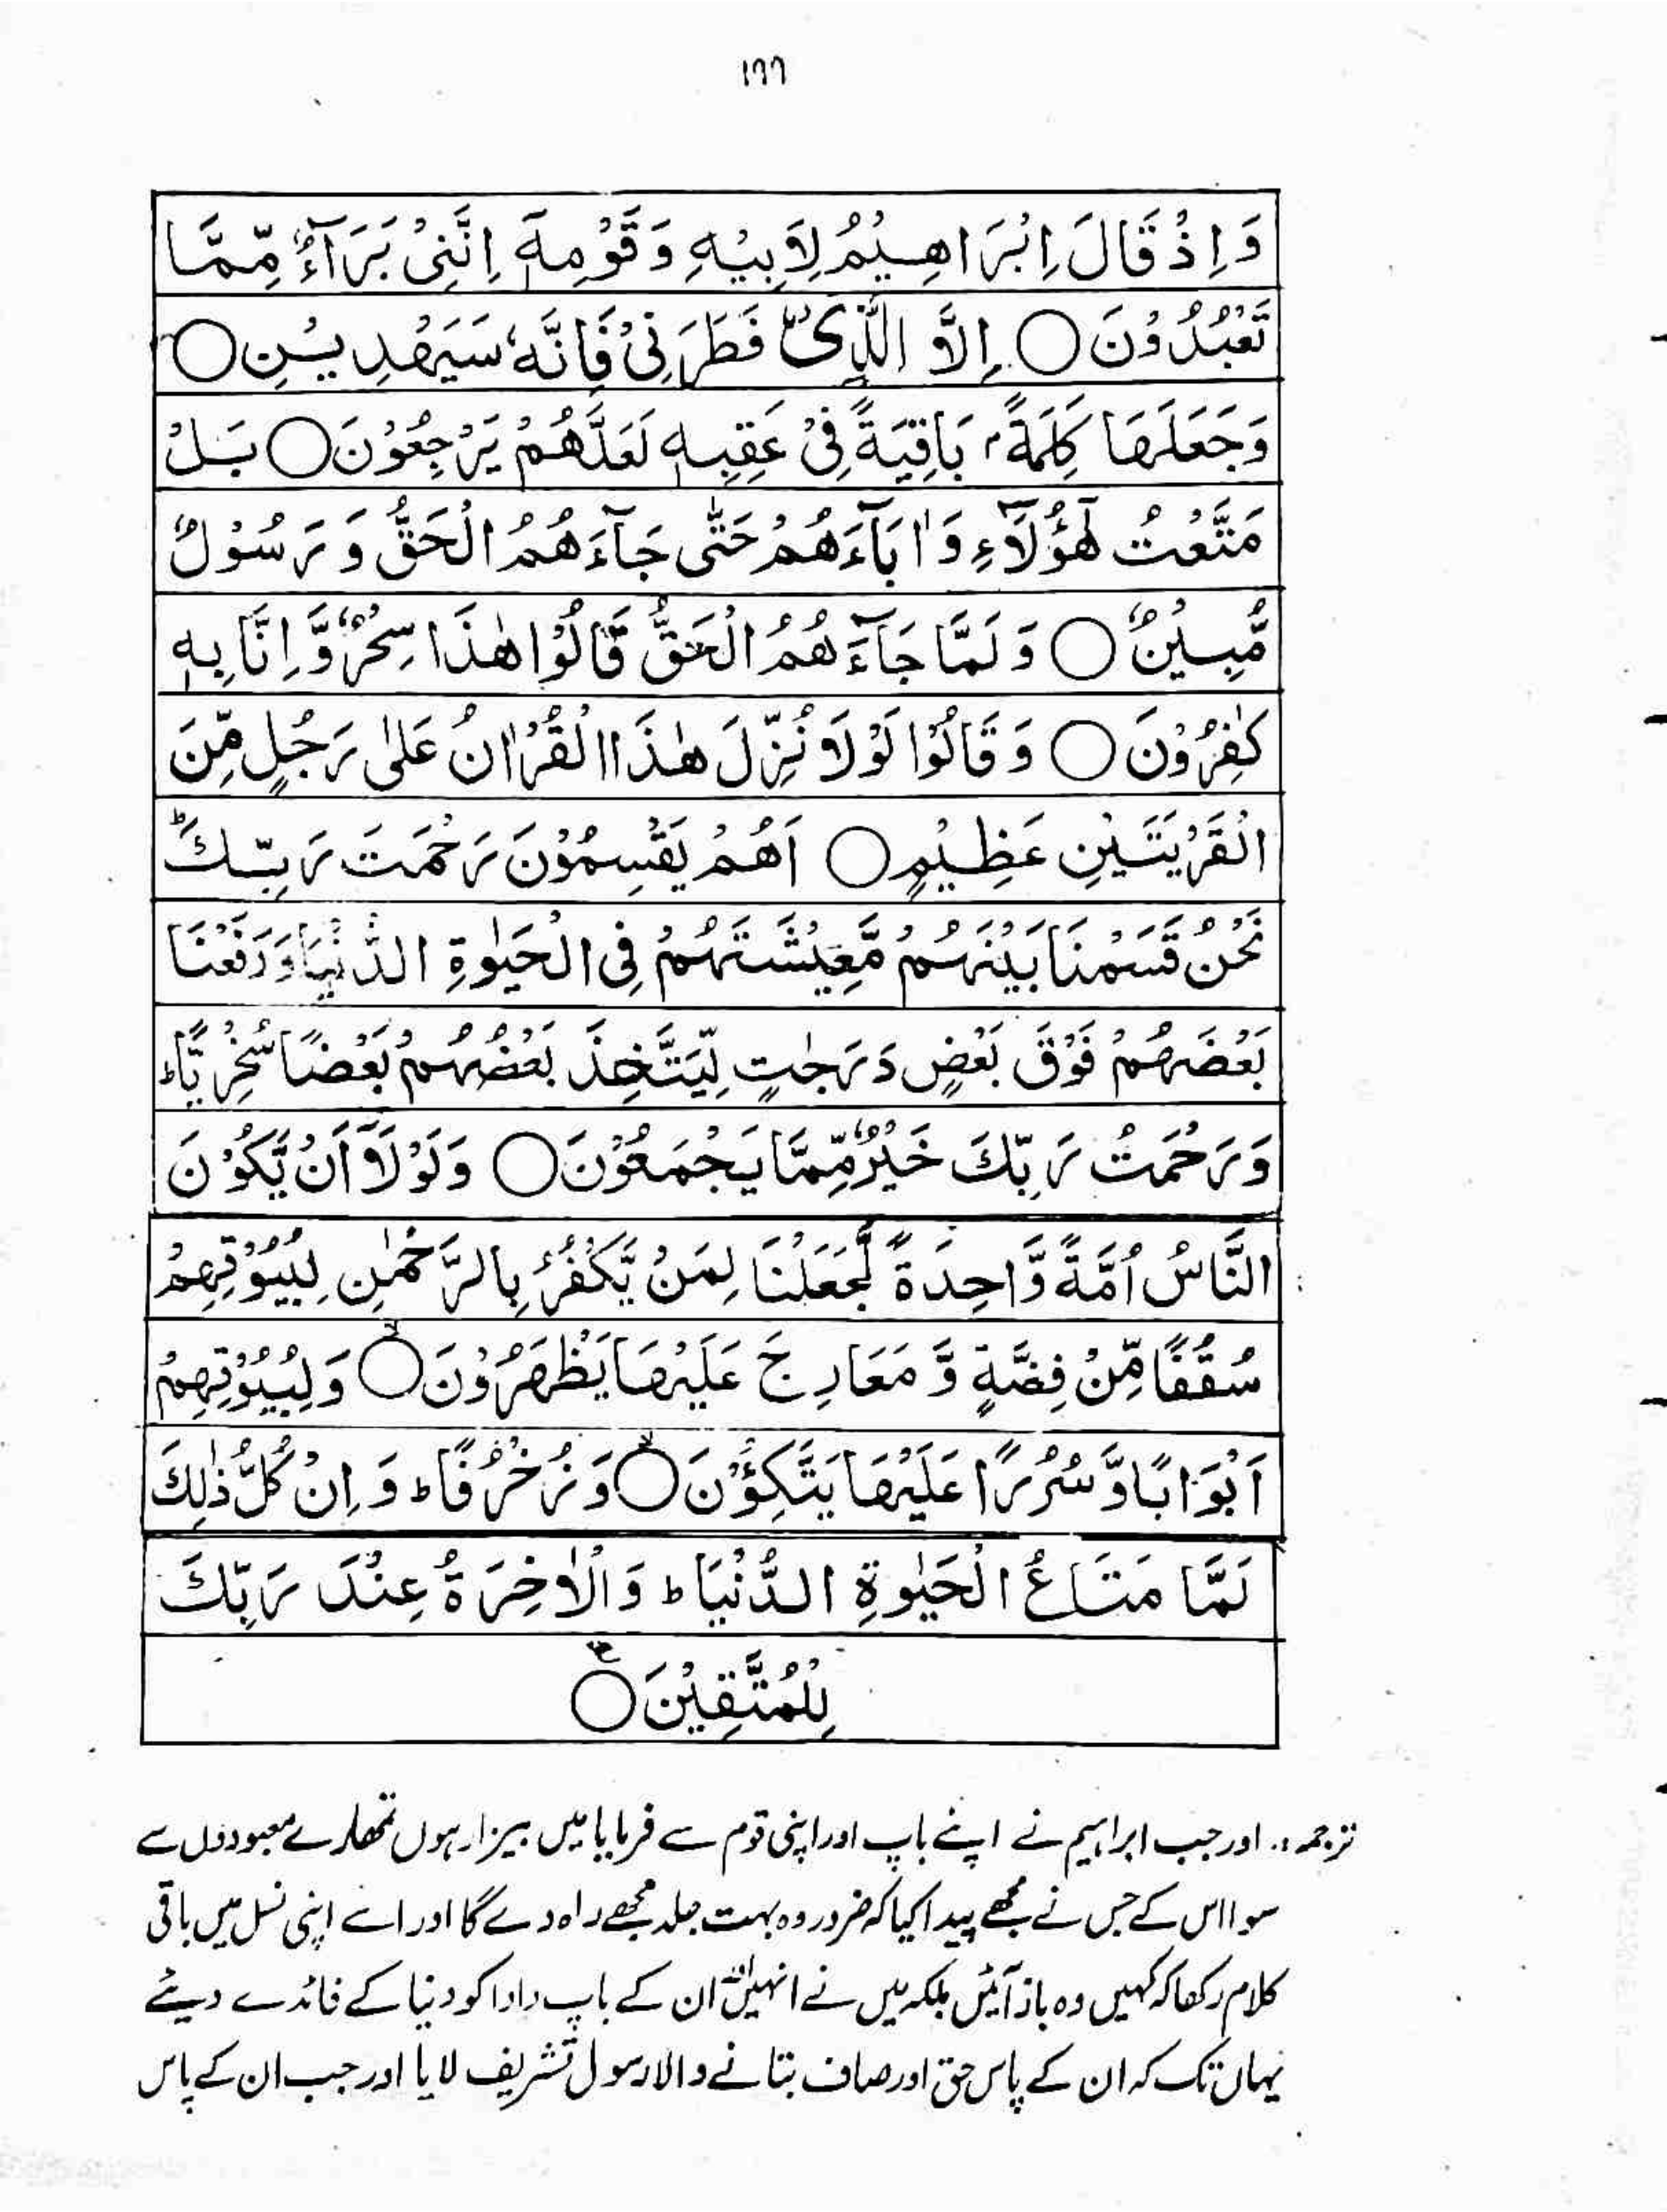 ۱۶۶
وَاِذْ قَالَ اِبْرَاهِیْمُ لِاَبِیْهِ وَقَوْمِهٖۤ اِنَّنِیْ بَرَآءٌ مِّمَّا
تَعْبُدُوْنَ ○ اِلَّا الَّذِیْ فَطَرَنِیْ فَاِنَّهٗ سَیَهْدِیْنِ ○
وَجَعَلَهَا كَلِمَةًۢ بَاقِیَةً فِیْ عَقِبِهٖ لَعَلَّهُمْ یَرْجِعُوْنَ ○ بَلْ
مَتَّعْتُ هٰۤؤُلَآءِ وَاٰبَآءَهُمْ حَتّٰی جَآءَهُمُ الْحَقُّ وَرَسُوْلٌ
مُّبِیْنٌ ○ وَلَمَّا جَآءَهُمُ الْحَقُّ قَالُوْا هٰذَا سِحْرٌ وَّاِنَّا بِهٖ
كٰفِرُوْنَ ○ وَقَالُوْا لَوْلَا نُزِّلَ هٰذَا الْقُرْاٰنُ عَلٰی رَجُلٍ مِّنَ
الْقَرْیَتَیْنِ عَظِیْمٍ ○ اَهُمْ یَقْسِمُوْنَ رَحْمَتَ رَبِّكَ ؕ
نَحْنُ قَسَمْنَا بَیْنَهُمْ مَّعِیْشَتَهُمْ فِی الْحَیٰوةِ الدُّنْیَا وَرَفَعْنَا
بَعْضَهُمْ فَوْقَ بَعْضٍ دَرَجٰتٍ لِّیَتَّخِذَ بَعْضُهُمْ بَعْضًا سُخْرِیًّا ؕ
وَرَحْمَتُ رَبِّكَ خَیْرٌ مِّمَّا یَجْمَعُوْنَ ○ وَلَوْلَاۤ اَنْ یَّكُوْنَ
النَّاسُ اُمَّةً وَّاحِدَةً لَّجَعَلْنَا لِمَنْ یَّكْفُرُ بِالرَّحْمٰنِ لِبُیُوْتِهِمْ
سُقُفًا مِّنْ فِضَّةٍ وَّ مَعَارِجَ عَلَیْهَا یَظْهَرُوْنَ ○ۙ وَلِبُیُوْتِهِمْ
اَبْوَابًا وَّ سُرُرًا عَلَیْهَا یَتَّكِـُٔوْنَ ○ۙ وَزُخْرُفًا ؕ وَ اِنْ كُلُّ ذٰلِكَ
لَمَّا مَتَاعُ الْحَیٰوةِ الدُّنْیَا ؕ وَالْاٰخِرَةُ عِنْدَ رَبِّكَ
لِلْمُتَّقِیْنَ ○ۧ
ترجمہ:۔ اور جب ابراہیم نے اپنے باپ اور اپنی قوم سے فرمایا میں بیزار ہوں تمھارے معبودوں سے
سوا اس کے جس نے مجھے پیدا کیا کہ ضرور وہ بہت جلد مجھے راہ دے گا اور اسے اپنی نسل میں باقی
کلام رکھا کہ کہیں وہ باز آئیں بلکہ میں نے انہیں اور ان کے باپ دادا کو دنیا کے فائدے دیئے
یہاں تک کہ ان کے پاس حق اور صاف بتانے والا رسول تشریف لایا اور جب ان کے پاس